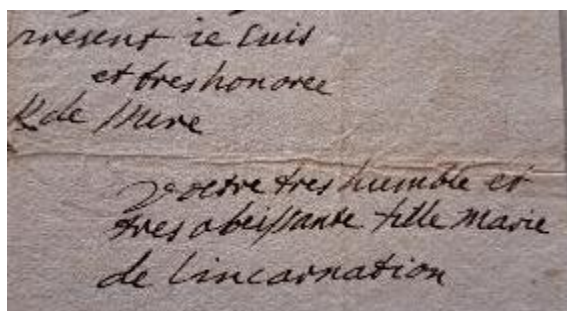 present ie suis
et tres honoree
Rde Mere
Vostre tres humble et
tres obeissante fille marie
de lincarnation